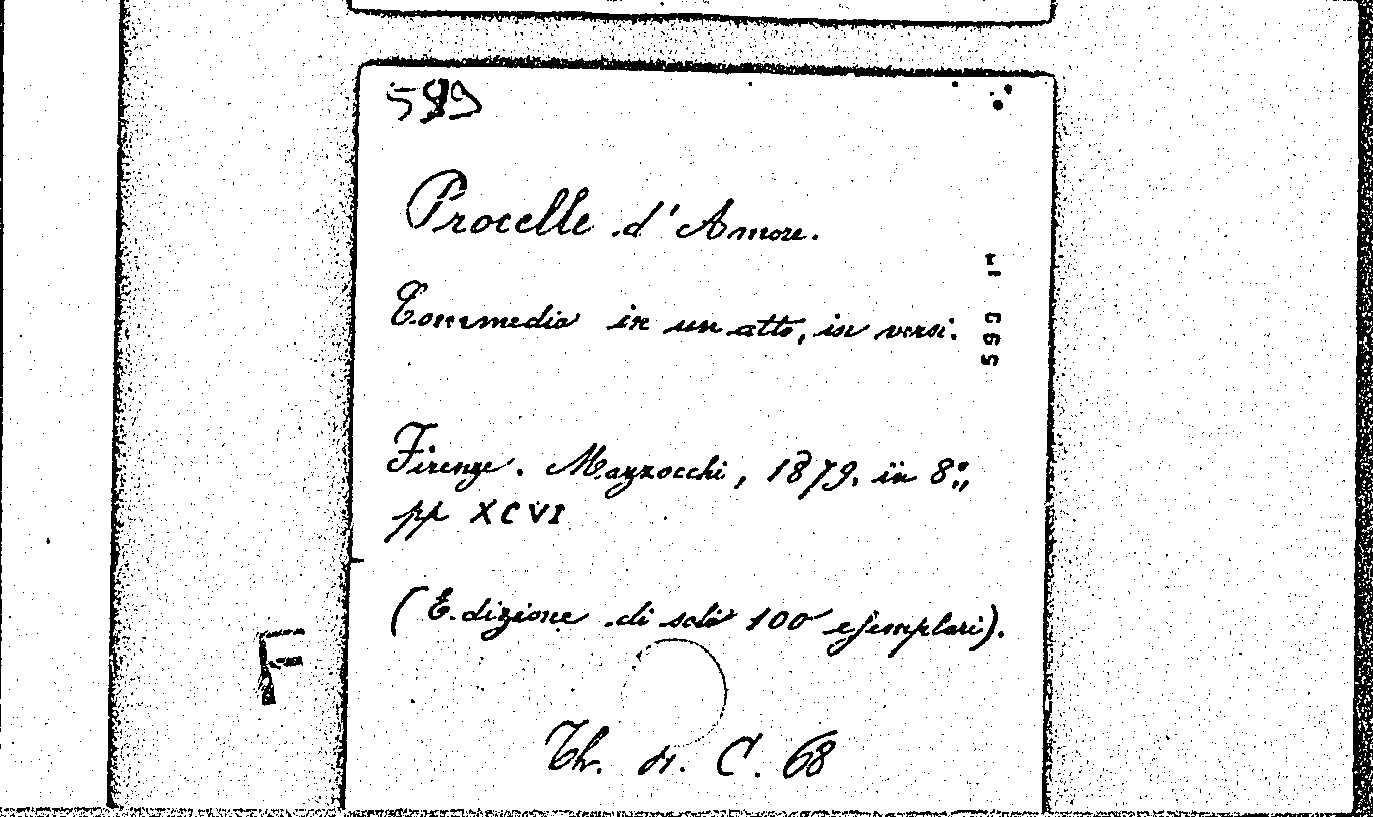 599
Procelle d'Amore.
Commedia in un atto, in versi.
599 1
Firenze. Mazzocchi, 1879. in 8º,
pp XCVI
(Edizione di soli 100 esemplari).
F
Th. dr. C. 68